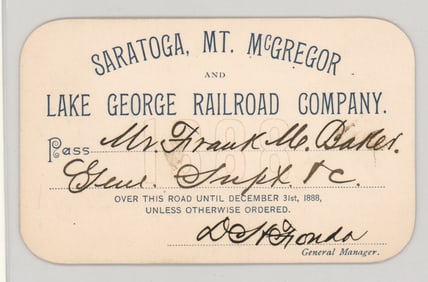 SARATOGA, MT. McGREGOR
AND
LAKE GEORGE RAILROAD COMPANY.
1888
Pass Mr. Frank M. Baker.
Genl. Supt. &c.
OVER THIS ROAD UNTIL DECEMBER 31st, 1888,
UNLESS OTHERWISE ORDERED.
D S Fonda
General Manager.